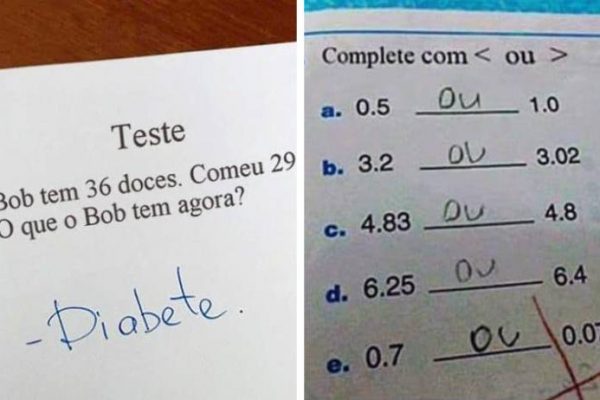 Teste
Bob tem 36 doces. Comeu 29
O que o Bob tem agora?
- Diabete.
Complete com < ou >
a. 0.5 ou 1.0
b. 3.2 ou 3.02
c. 4.83 ou 4.8
d. 6.25 ou 6.4
e. 0.7 ou 0.07